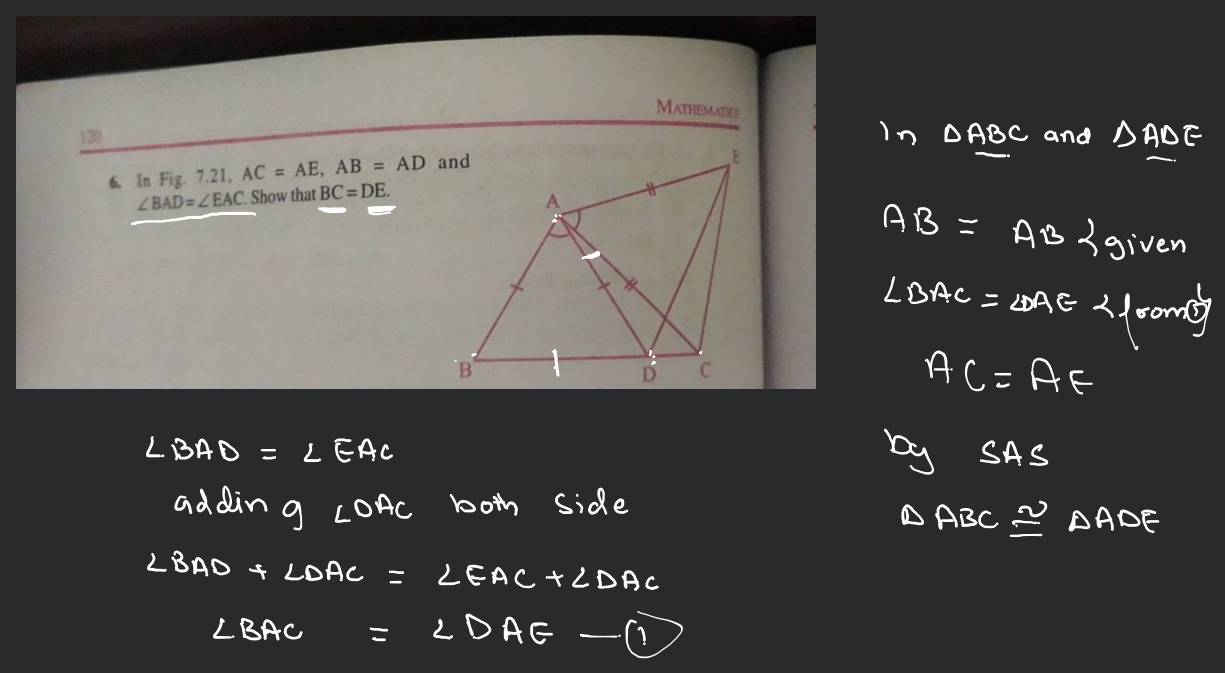 120
MATHEMATICS
6. In Fig. 7.21, AC = AE, AB = AD and
∠BAD=∠EAC. Show that BC=DE.
A
E
B
D
C
∠BAD = ∠EAC
adding ∠DAC both side
∠BAD + ∠DAC = ∠EAC+∠DAC
∠BAC = ∠DAE —①
In ΔABC and ΔADE
AB = AB {given
∠BAC = ∠DAE {from ①}
AC = AE
by SAS
ΔABC ≅ ΔADE